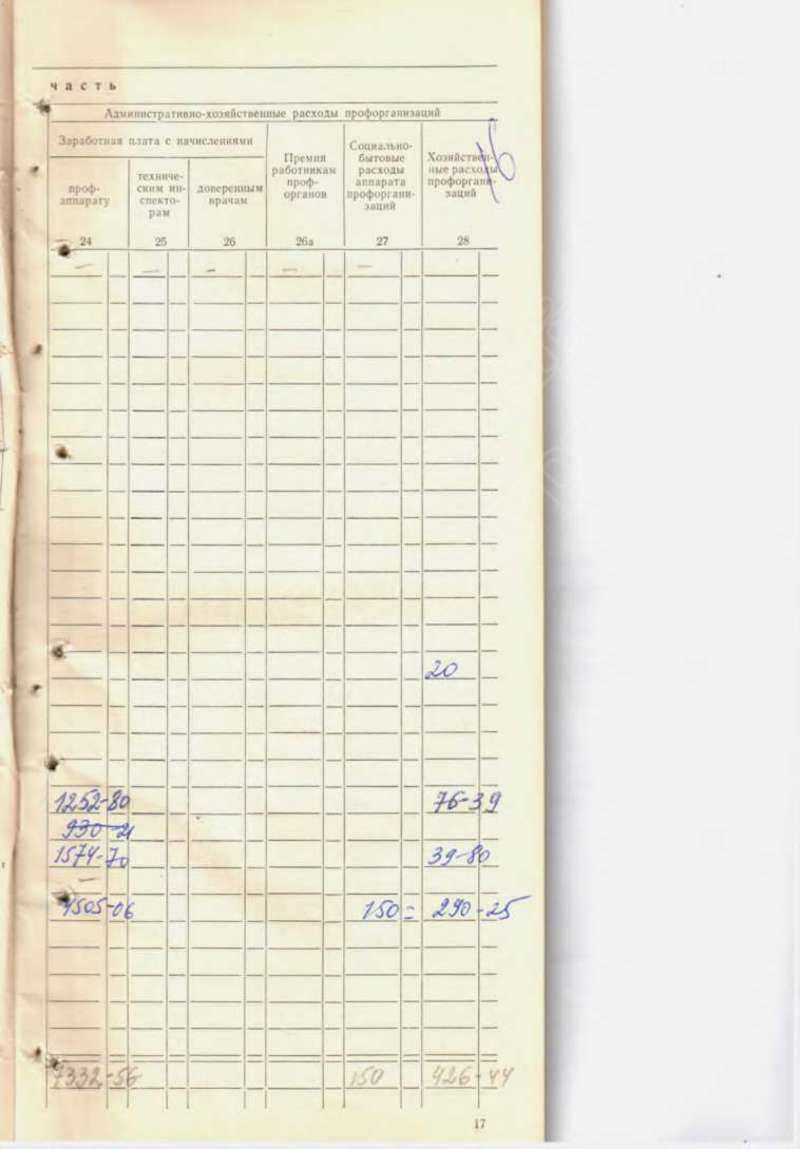 часть
Административно-хозяйственные расходы профорганизаций
16
Заработная плата с начислениями
Премия работникам проф- органов
Социально- бытовые расходы аппарата профоргани- заций
Хозяйствен- ные расходы профоргани- заций
проф- аппарату
техниче- ским ин- спекто- рам
доверенным врачам
24 25 26 26а 27 28
— — - — —
20
1252-80 76-39
930-21
1574-70 39-80
—
4505-06 150= 290-25
7332-56 150 426-44
17